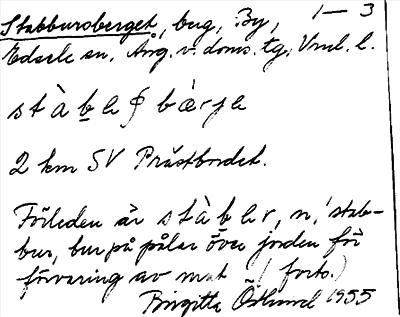 Stabbursberget, berg, By, 1–3
Edsele sn, Ång. v. doms. tg, Vrml. l.
stàbɐ bæ̀rje
2 km SV Prästbordet.
Förleden är stàbɐr, n, 'stab-
bur, bur på pålar över jorden för
förvaring av mat (forts.)
Birgitta Östlund 1955